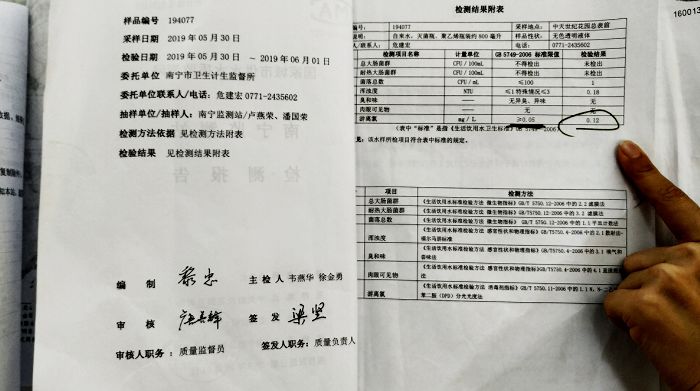 样品编号 194077
采样日期 2019 年 05 月 30 日
检验日期 2019 年 05 月 30 日 ~ 2019 年 06 月 01 日
委托单位 南宁市卫生计生监督所
委托单位联系人/电话 危建宏 0771-2435602
抽样单位/抽样人: 南宁监测站/卢燕荣、潘国荣
检测方法依据 见检测方法附表
检验结果 见检测结果附表
检 测 报 告
编 制
主 检 人 韦燕华 徐金勇
审 核
签 发 梁坚
审核人职务: 质量监督员
签发人职务: 质量负责人
检测结果附表
194077 采样地点: 中天世纪花园总表前
自来水, 灭菌瓶、聚乙烯瓶装约 800 毫升 样品性状: 无色透明液体
联系人: 危建宏 电话: 0771-2435602
检测项目名称 计量单位 GB 5749-2006 标准限值 检验结果
总大肠菌群 CFU/100mL 不得检出 未检出
耐热大肠菌群 CFU/100mL 不得检出 未检出
菌落总数 CFU/mL ≤100 1
浑浊度 NTU ≤1 特殊情况≤3 0.18
臭和味 — 无异臭、异味 无
肉眼可见物 — 无 无
游离氯 mg / L ≥0.05 0.12
(表中“标准”是指《生活饮用水卫生标准》GB 5749-2006)
该水样所检项目符合表中标准的规定。
项目 检测方法
总大肠菌群 《生活饮用水标准检验方法 微生物指标》GB/T 5750.12-2006 中的 2.2 滤膜法
耐热大肠菌群 《生活饮用水标准检验方法 微生物指标》GB/T 5750.12-2006 中的 3.2 滤膜法
菌落总数 《生活饮用水标准检验方法 微生物指标》GB/T 5750.12-2006 中的 1.1 平皿计数法
浑浊度 《生活饮用水标准检验方法 感官性状和物理指标》GB/T5750.4-2006 中的 2.1 散射法-
福尔马肼标准
臭和味 《生活饮用水标准检验方法 感官性状和物理指标》GB/T5750.4-2006 中的 3.1 嗅气和
尝味法
肉眼可见物 《生活饮用水标准检验方法 感官性状和物理指标》GB/T5750.4-2006 中的 4.1 直接观
游离氯 《生活饮用水标准检验方法 消毒剂指标》GB/T 5750.11-2006 中的 1.1 N, N-二乙
苯二胺 (DPD) 分光光度法
160013